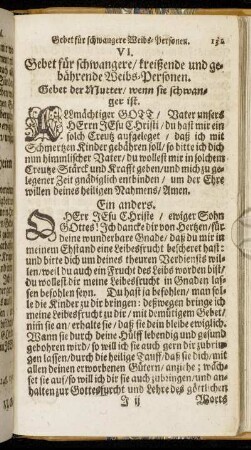 Gebet für schwangere Weibs-Personen.
VI.
Gebet für schwangere/ kreißende und ge-
bährende Weibs-Personen.
Gebet der Mutter/ wenn sie schwan-
ger ist.
ALlmächtiger GOTT/ Vater unsers
HErrn JEsu Christi/ du hast mir ein
solch Creutz aufgeleget/ daß ich mit
Schmertzen Kinder gebähren soll/ so bitte ich dich
nun himmlischer Vater/ du wollest mir in solchem
Creutze Stärck und Krafft geben/ und mich zu ge-
legener Zeit gnädiglich entbinden/ um der Ehre
willen deines heiligen Nahmens/ Amen.
Ein anders.
O HErr JEsu Christe/ ewiger Sohn
GOttes! Ich dancke dir von Hertzen/ für
deine wunderbare Gnade/ daß du mir in
meinem Ehstand eine Leibesfrucht bescheret hast:
und bitte dich um deines theuren Verdienstes wil-
len/ weil du auch ein Frucht des Leibs worden bist/
du wollest dir meine Leibesfrucht in Gnaden las-
sen befohlen seyn. Du hast ja befohlen/ man sol-
le die Kinder zu dir bringen: deßwegen bringe ich
meine Leibesfrucht zu dir/ mit demütigem Gebet/
nim sie an/ erhalte sie/ daß sie dein bleibe ewiglich.
Wann sie durch deine Hülff lebendig und gesund
gebohren wird/ so will ich sie auch gern dir zubrin-
gen lassen/ durch die heilige Tauff/ daß sie dich/ mit
allen deinen erworbenen Gütern/ anziehe; wäch-
set sie auf/ so will ich dir sie auch zubringen/ und an-
halten zur Gottesfurcht und Lehre des göttlichen
J ij Worts